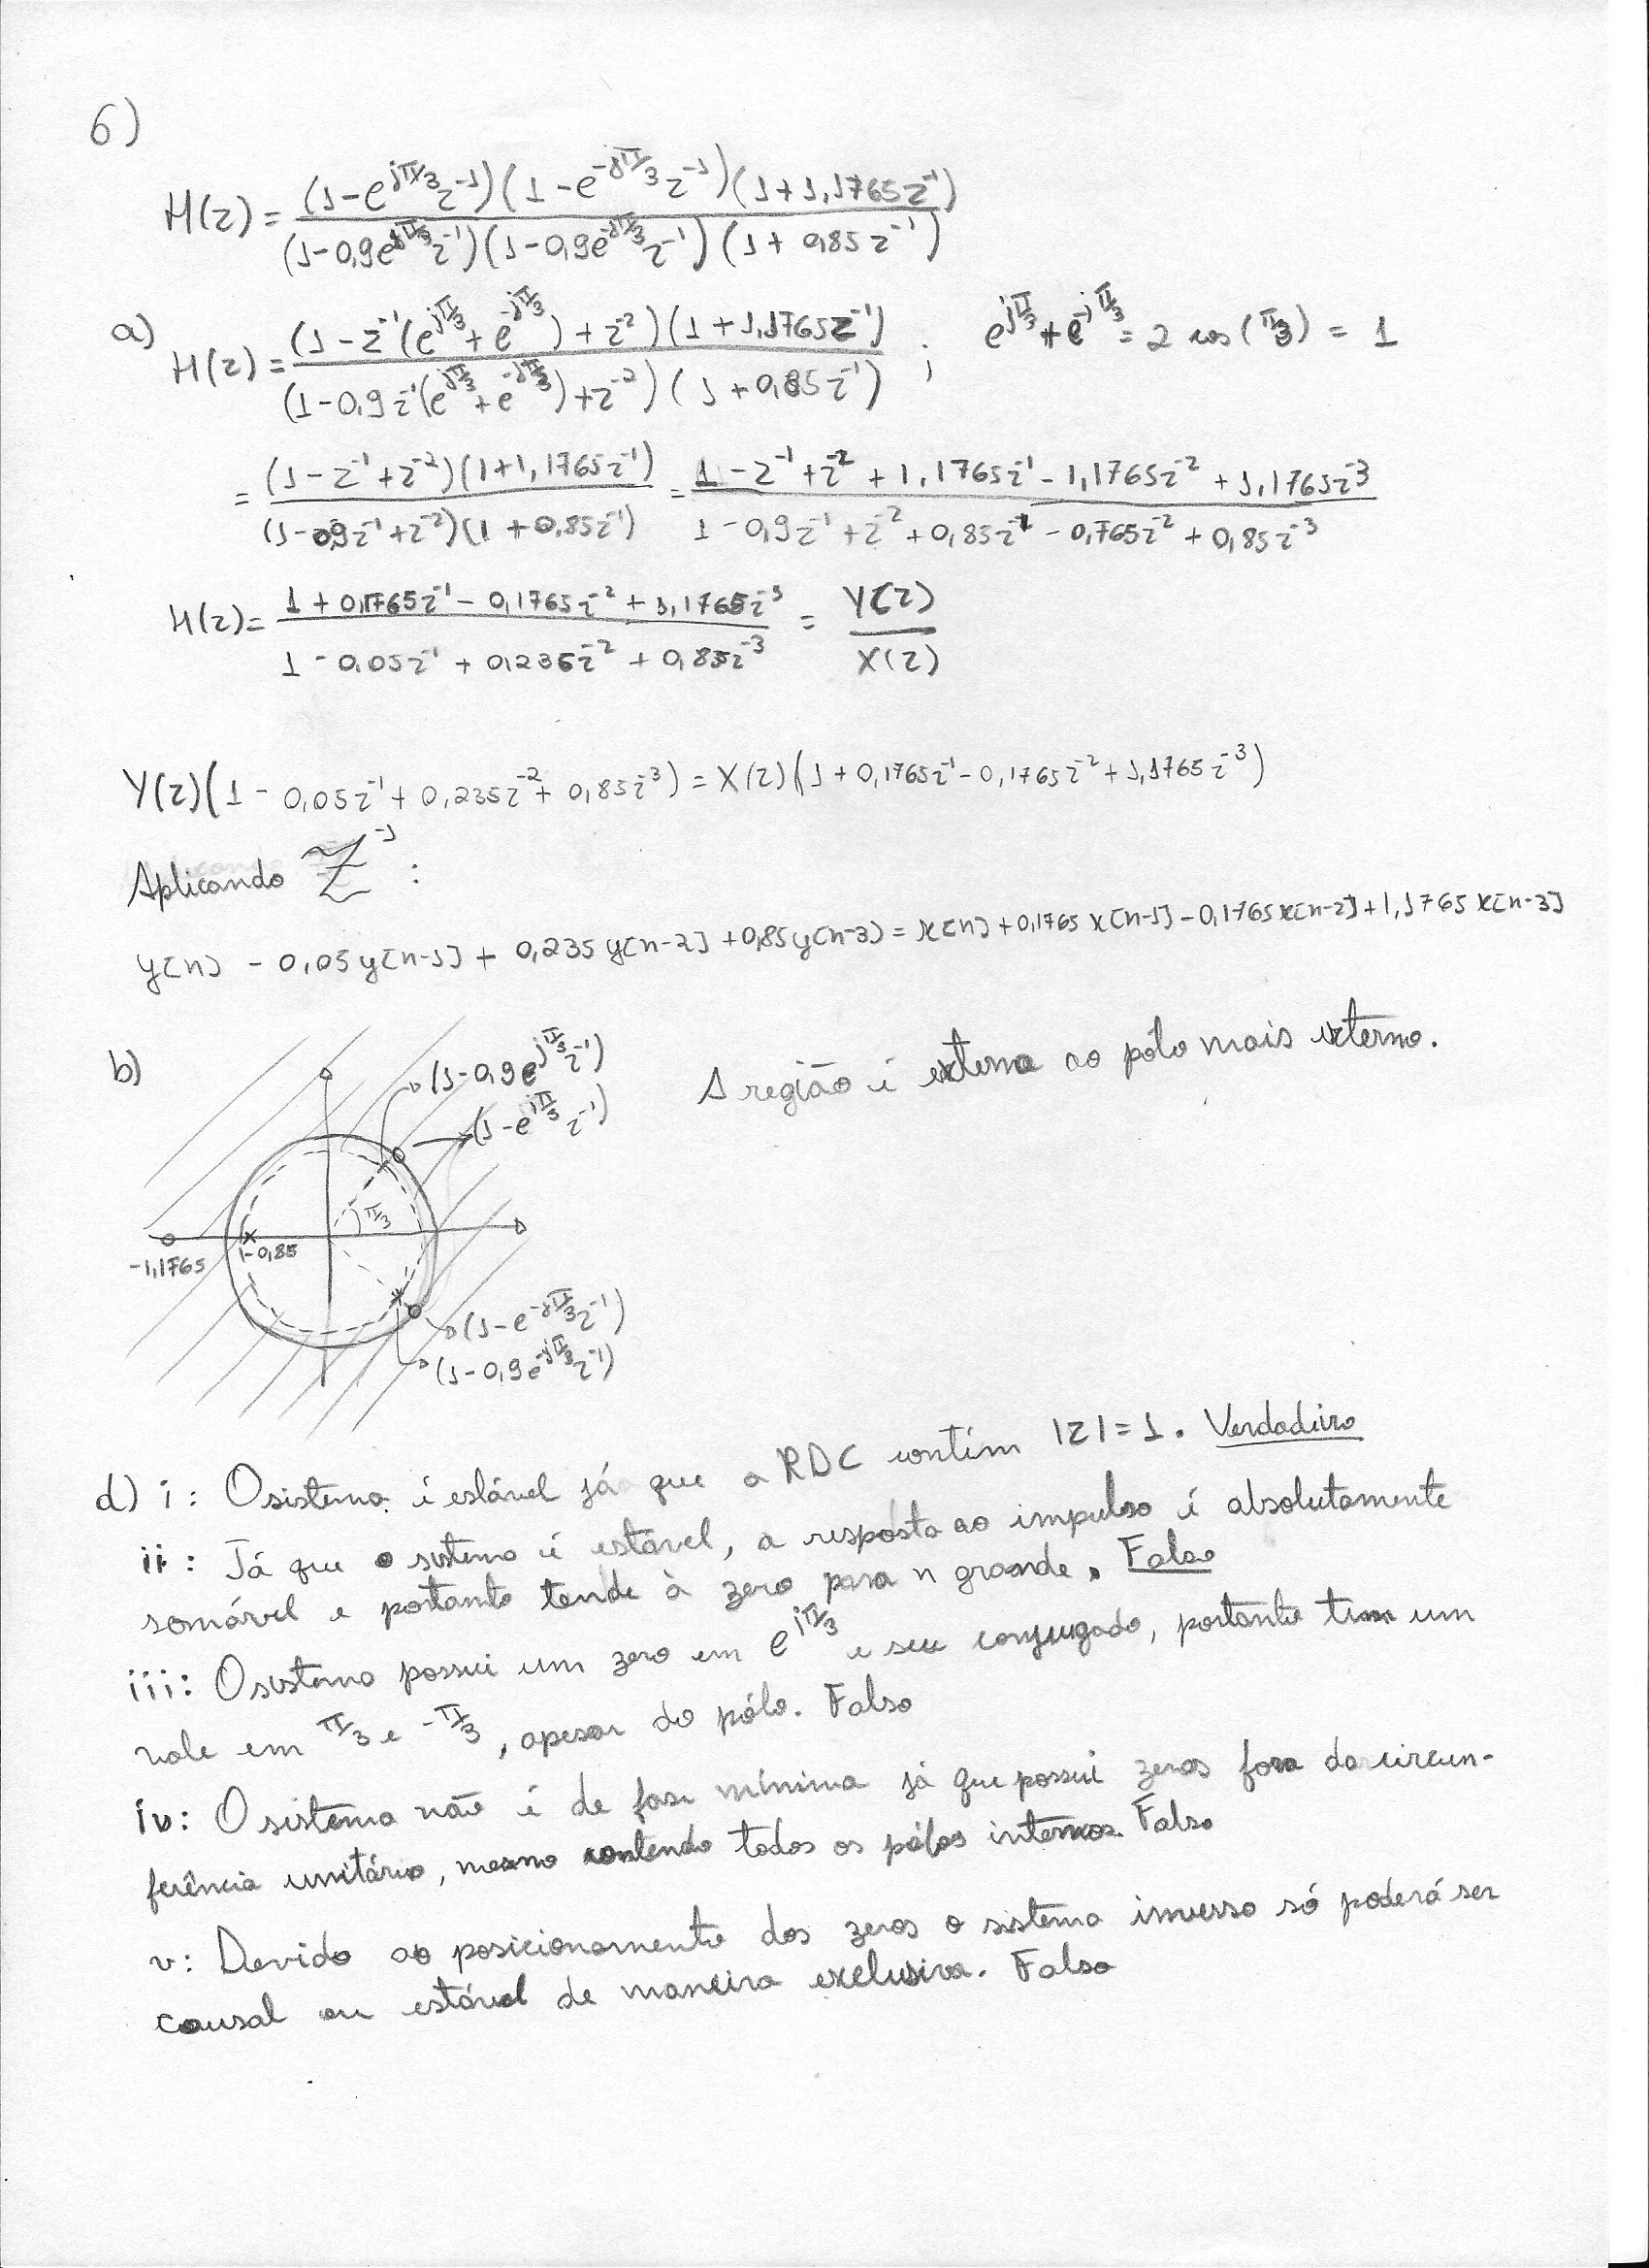 6)
H(z) = (1-e^{jπ/3}z^{-1})(1-e^{-jπ/3}z^{-1})(1+1,1765z^{-1}) / (1-0,9e^{jπ/3}z^{-1})(1-0,9e^{-jπ/3}z^{-1})(1+0,85z^{-1})
a) H(z) = (1-z^{-1}(e^{jπ/3}+e^{-jπ/3})+z^{-2})(1+1,1765z^{-1}) / (1-0,9z^{-1}(e^{jπ/3}+e^{-jπ/3})+z^{-2})(1+0,85z^{-1}) ; e^{jπ/3}+e^{-jπ/3} = 2 cos(π/3) = 1
= (1-z^{-1}+z^{-2})(1+1,1765z^{-1}) / (1-0,9z^{-1}+z^{-2})(1+0,85z^{-1}) = 1-z^{-1}+z^{-2}+1,1765z^{-1}-1,1765z^{-2}+1,1765z^{-3} / 1-0,9z^{-1}+z^{-2}+0,85z^{-1}-0,765z^{-2}+0,85z^{-3}
H(z) = 1+0,1765z^{-1}-0,1765z^{-2}+1,1765z^{-3} / 1-0,05z^{-1}+0,235z^{-2}+0,85z^{-3} = Y(z) / X(z)
Y(z)(1-0,05z^{-1}+0,235z^{-2}+0,85z^{-3}) = X(z)(1+0,1765z^{-1}-0,1765z^{-2}+1,1765z^{-3})
Aplicando Z^{-1} :
y[n] - 0,05y[n-1] + 0,235y[n-2] + 0,85y[n-3] = x[n] + 0,1765x[n-1] - 0,1765x[n-2] + 1,1765x[n-3]
b)
(1-0,9e^{jπ/3}z^{-1})
(1-e^{jπ/3}z^{-1})
A região é externa ao pólo mais externo.
π/3
-1,1765
-0,85
(1-e^{-jπ/3}z^{-1})
(1-0,9e^{-jπ/3}z^{-1})
d) i: O sistema é estável já que a RDC contém |z|=1. Verdadeiro
ii: Já que o sistema é estável, a resposta ao impulso é absolutamente
somável e portanto tende à zero para n grande. Falso
iii: O sistema possui um zero em e^{jπ/3} e seu conjugado, portanto tem um
vale em π/3 e -π/3, apesar do pólo. Falso
iv: O sistema não é de fase mínima já que possui zeros fora da circun-
ferência unitária, mesmo contendo todos os pólos internos. Falso
v: Devido ao posicionamento dos zeros o sistema inverso só poderá ser
causal ou estável de maneira exclusiva. Falso